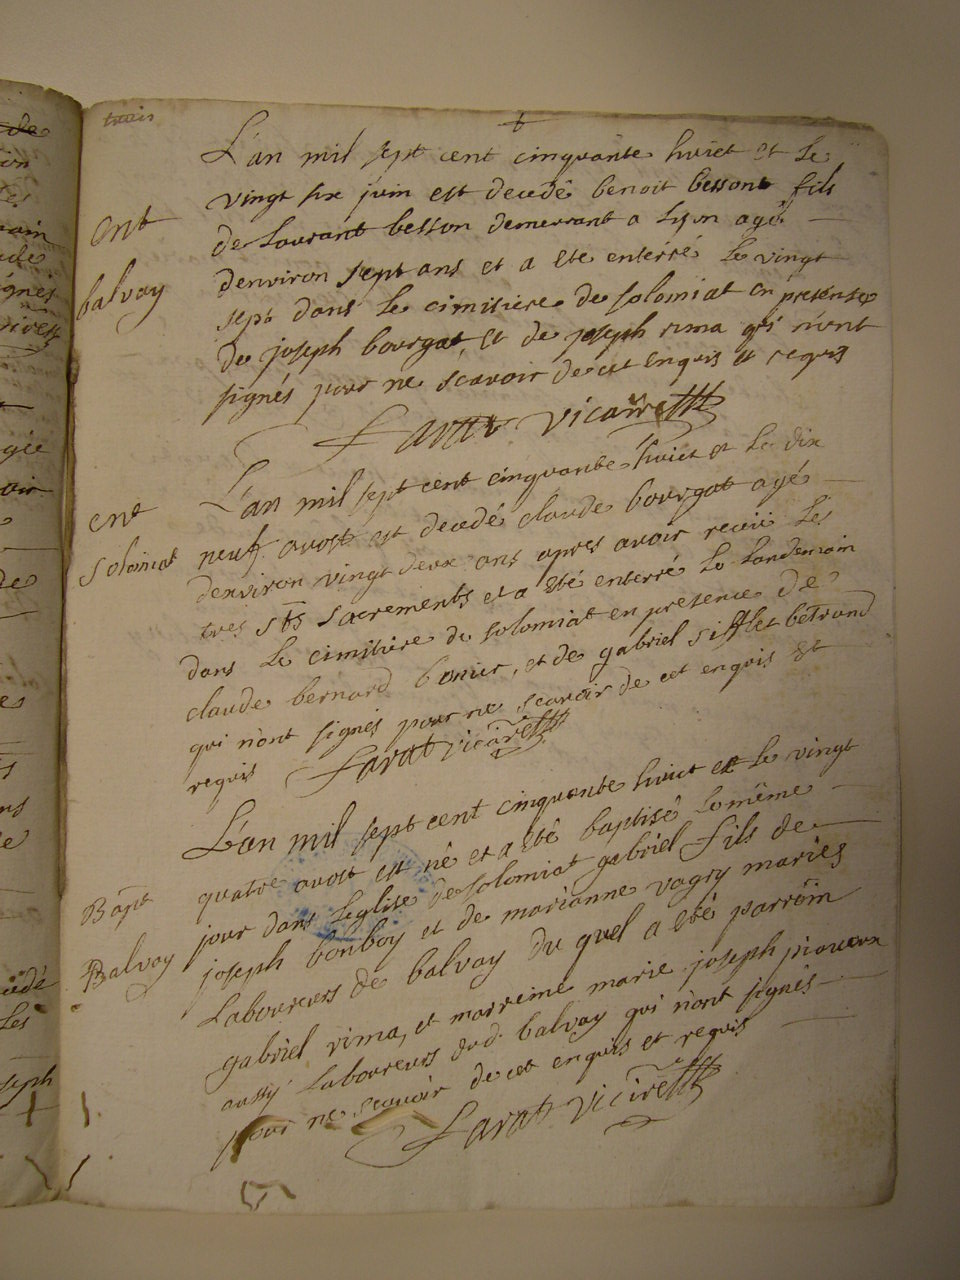 trois
L'an mil sept cent cinquante huict et le
vingt six juin est decedé benoit bessont fils
de Laurant besson demeurant a Lyon agé
ent
balvay
denviron sept ans et a ete enterré le vingt
sept dans le cimitiere de solomiat en presense
de joseph bourgat, et de joseph rima qui n'ont
signés pour ne scavoir de cet enquis et requis
farat vicaire
L'an mil sept cent cinquante huict et le dix
ent
solomiat
neuf avost est decedé claude bourgat agé
denviron vingt deux ans apres avoir receu les
tres sts sacrements et a eté enterré le landemain
dans le cimitiere de solomiat en presence de
claude bernard bonier, et de gabriel sifflet betrand
qui n'ont signés pour ne scavoir de cet enquis et
requis farat vicaire
L'an mil sept cent cinquante huict et le vingt
Bapt
Balvay
quatre avost est né et a eté baptisé le même
jour dans leglise de solomiat gabriel fils de
joseph bonboy et de marianne vagry mariés
Laboureurs de balvay du quel a eté parrein
gabriel rima, et marreine marie joseph piaveux
aussy Laboureurs dud. balvay qui n'ont signés
pour ne scavoir de cet enquis et requis
farat vicire